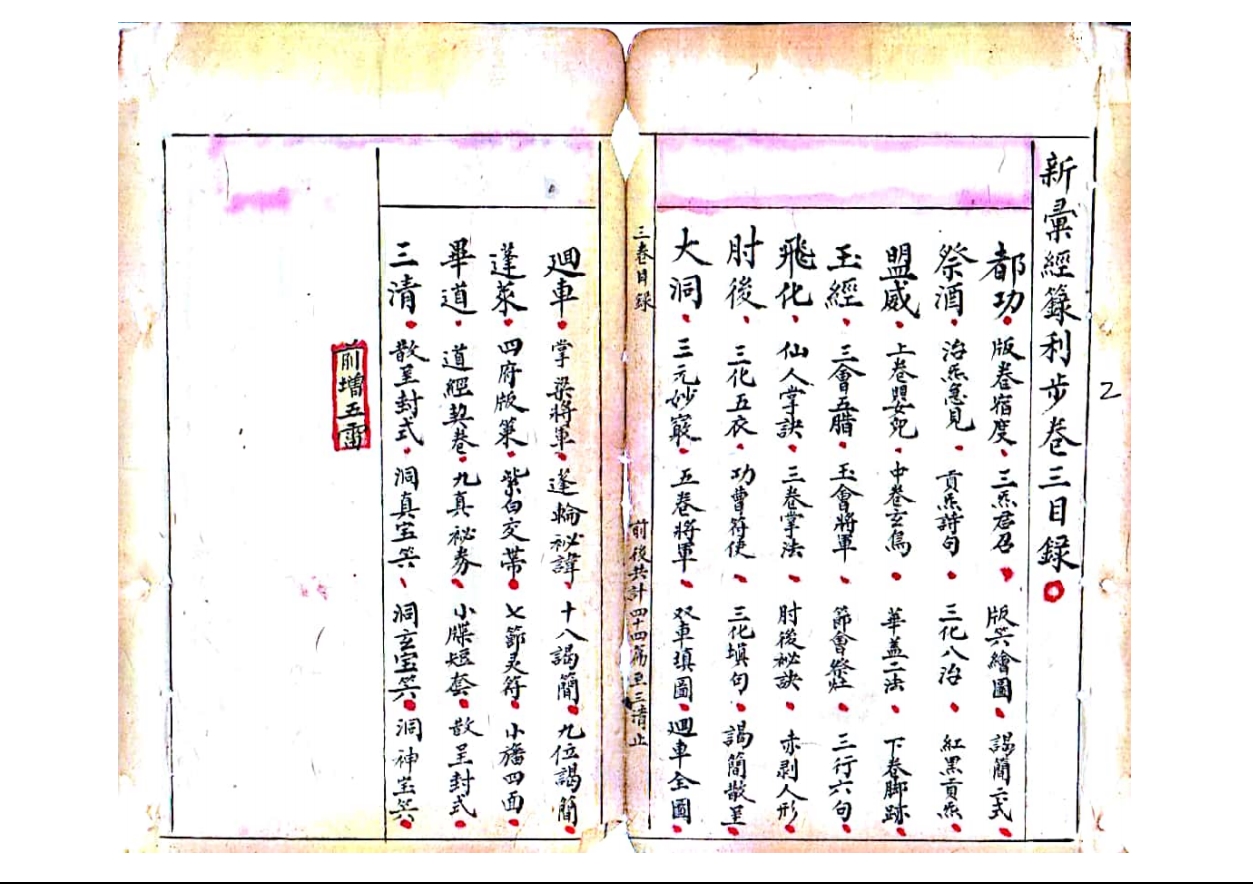 新彙經籙利步卷三目錄
都功 版卷宿度 三炁君召 版笶繪圖 謁簡二式
祭酒 治炁急見 貢炁詩句 三化八治 紅黑貢炁
盟威 上卷嬰兒 中卷玄鳥 華盖二法 下卷脚跡
玉經 三會五腊 玉會將軍 節會祭灶 三行六句
飛化 仙人掌訣 三卷掌法 肘後祕訣 赤剥人形
肘後 三化五衣 功曹符使 三化填句 謁簡散呈
大洞 三元妙寂 五卷將軍 双車填圖 廻車全圖
三卷目録
前後共計四十四篇至三清止
廻車 掌梁將軍 蓬輪祕諱 十八謁簡 九位謁簡
蓬萊 四府版策 紫白交帶 七節灵符 小旛四面
畢道 道經契卷 九真祕券 小牒短套 散呈封式
三清 散呈封式 洞真宝笶 洞玄宝笶 洞神宝笶
前增五雷
2